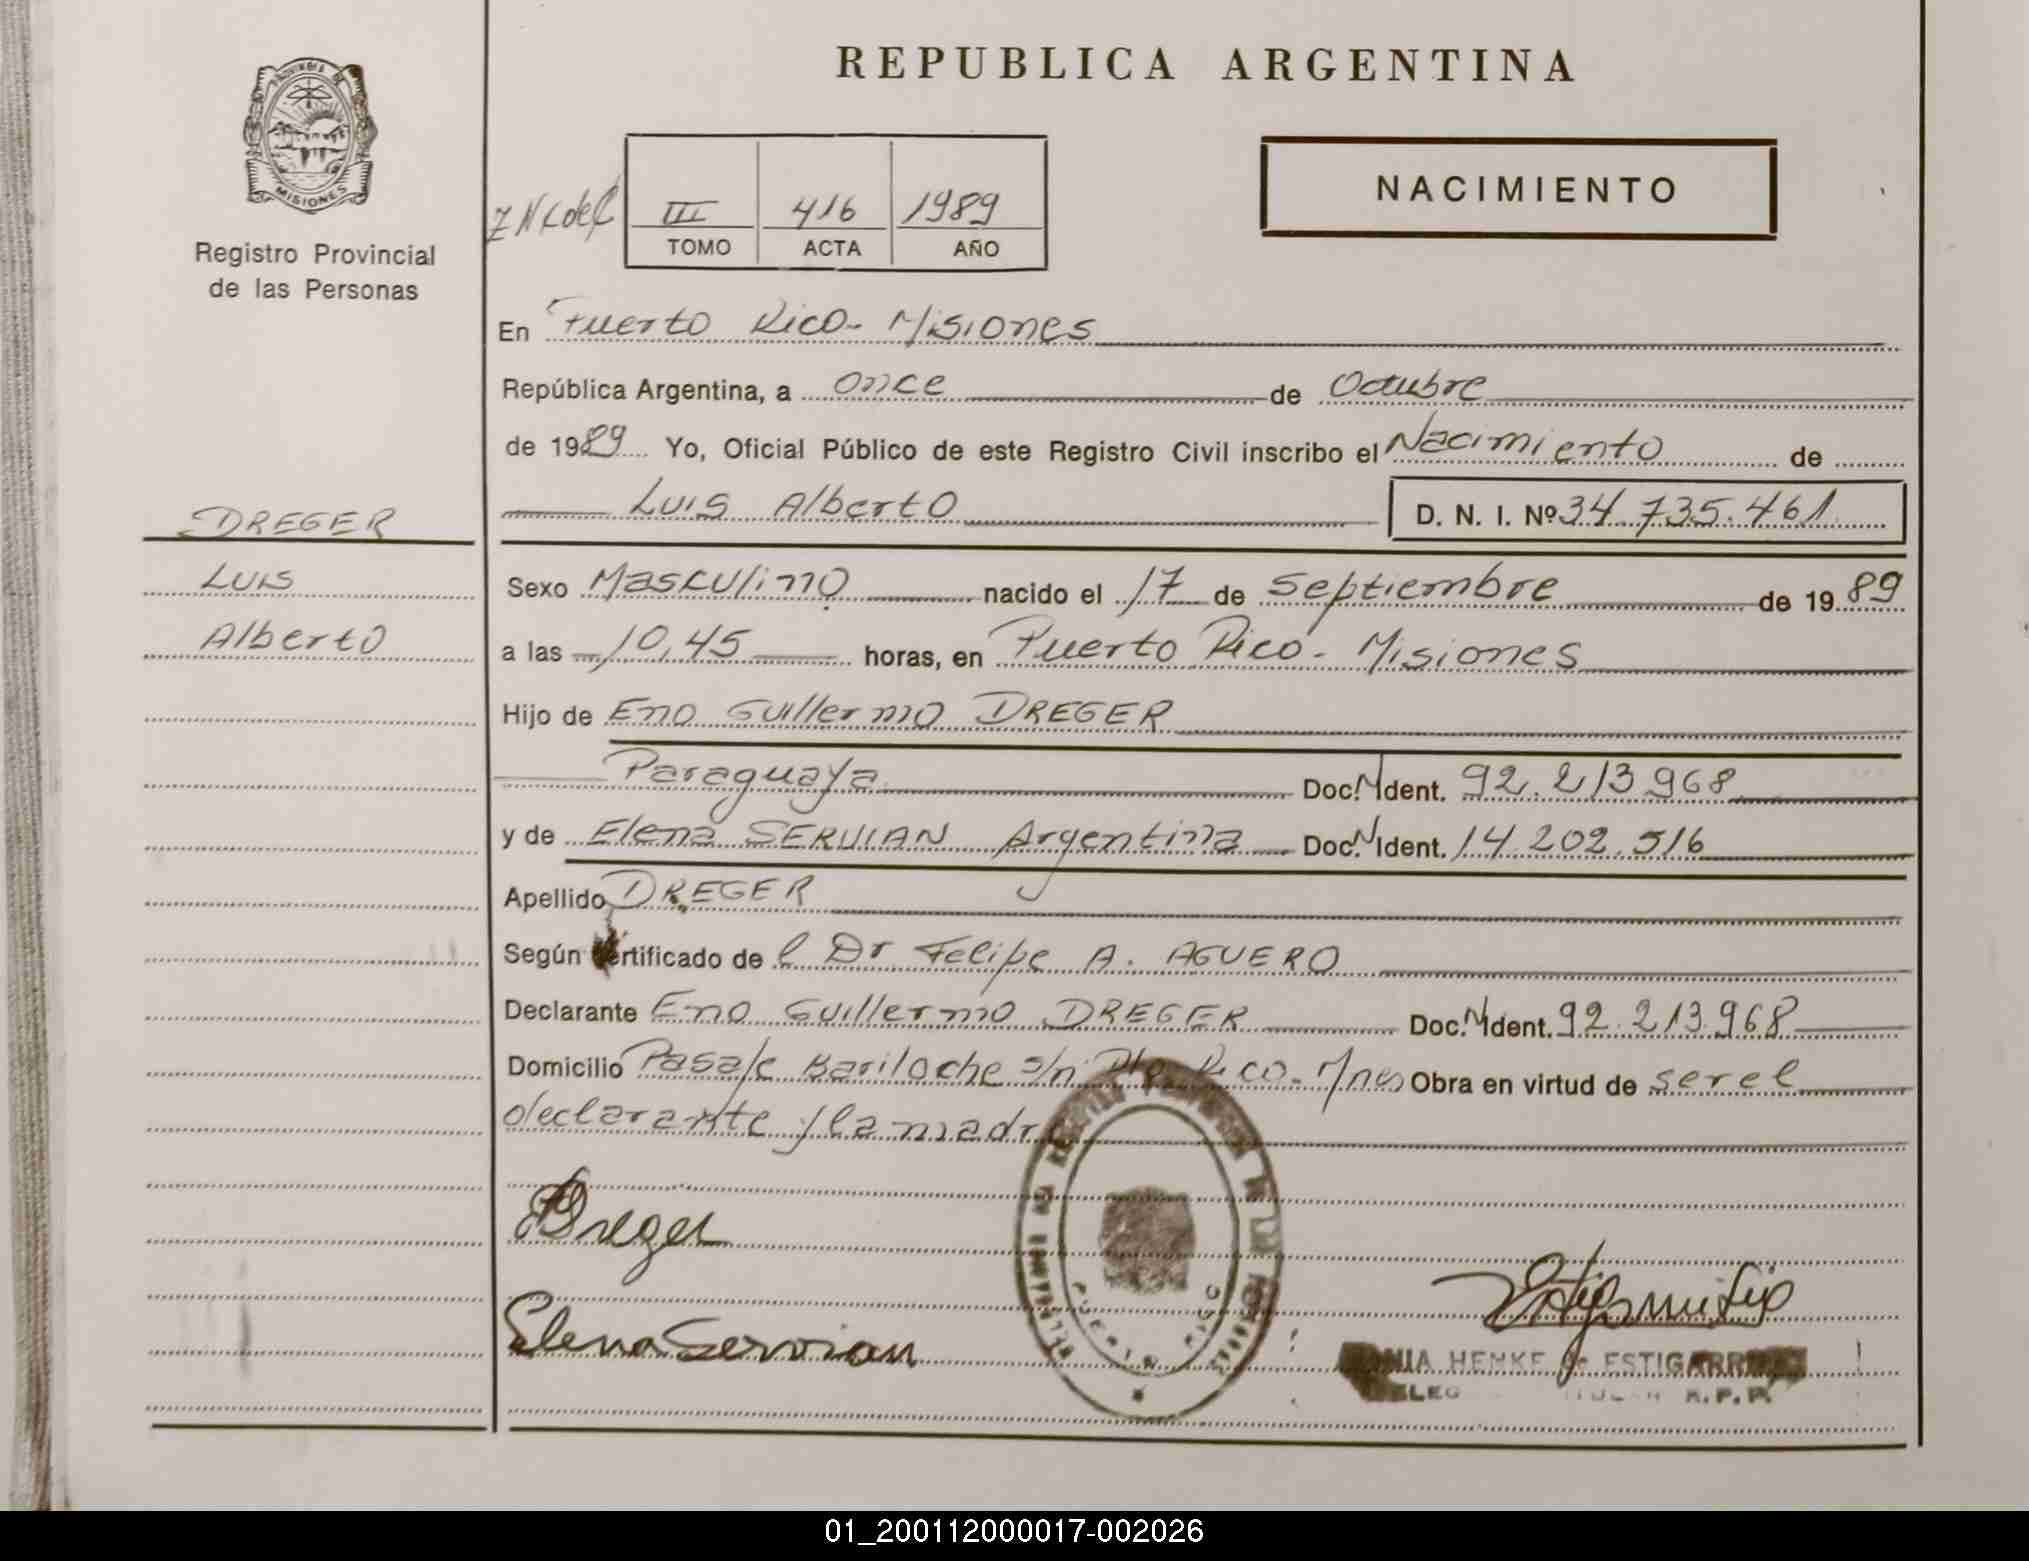 REPUBLICA ARGENTINA
PROVINCIA DE
MISIONES
Registro Provincial
de las Personas
III 416 1989
TOMO ACTA AÑO
NACIMIENTO
En Puerto Rico - Misiones
República Argentina, a once de Octubre
de 1989 Yo, Oficial Público de este Registro Civil inscribo el Nacimiento de
Luis Alberto D. N. I. Nº 34.735.461
DREGER
Luis
Alberto
Sexo Masculino nacido el 17 de Septiembre de 1989
a las 10,45 horas, en Puerto Rico - Misiones
Hijo de Eno Guillermo DREGER
Paraguaya Doc. N Ident. 92.213.968
y de Elena SERVIAN Argentina Doc. N Ident. 14.202.516
Apellido DREGER
Según Certificado de l Dr Felipe A. AGUERO
Declarante Eno Guillermo DREGER Doc. N Ident. 92.213.968
Domicilio Pasaje Bariloche s/n Pto Rico - Mnes Obra en virtud de ser el
declarante y la madre
Dreger
Elena Servian
PUERTO RICO
HENKE de ESTIGARRI
R.P.P.
01_200112000017-002026